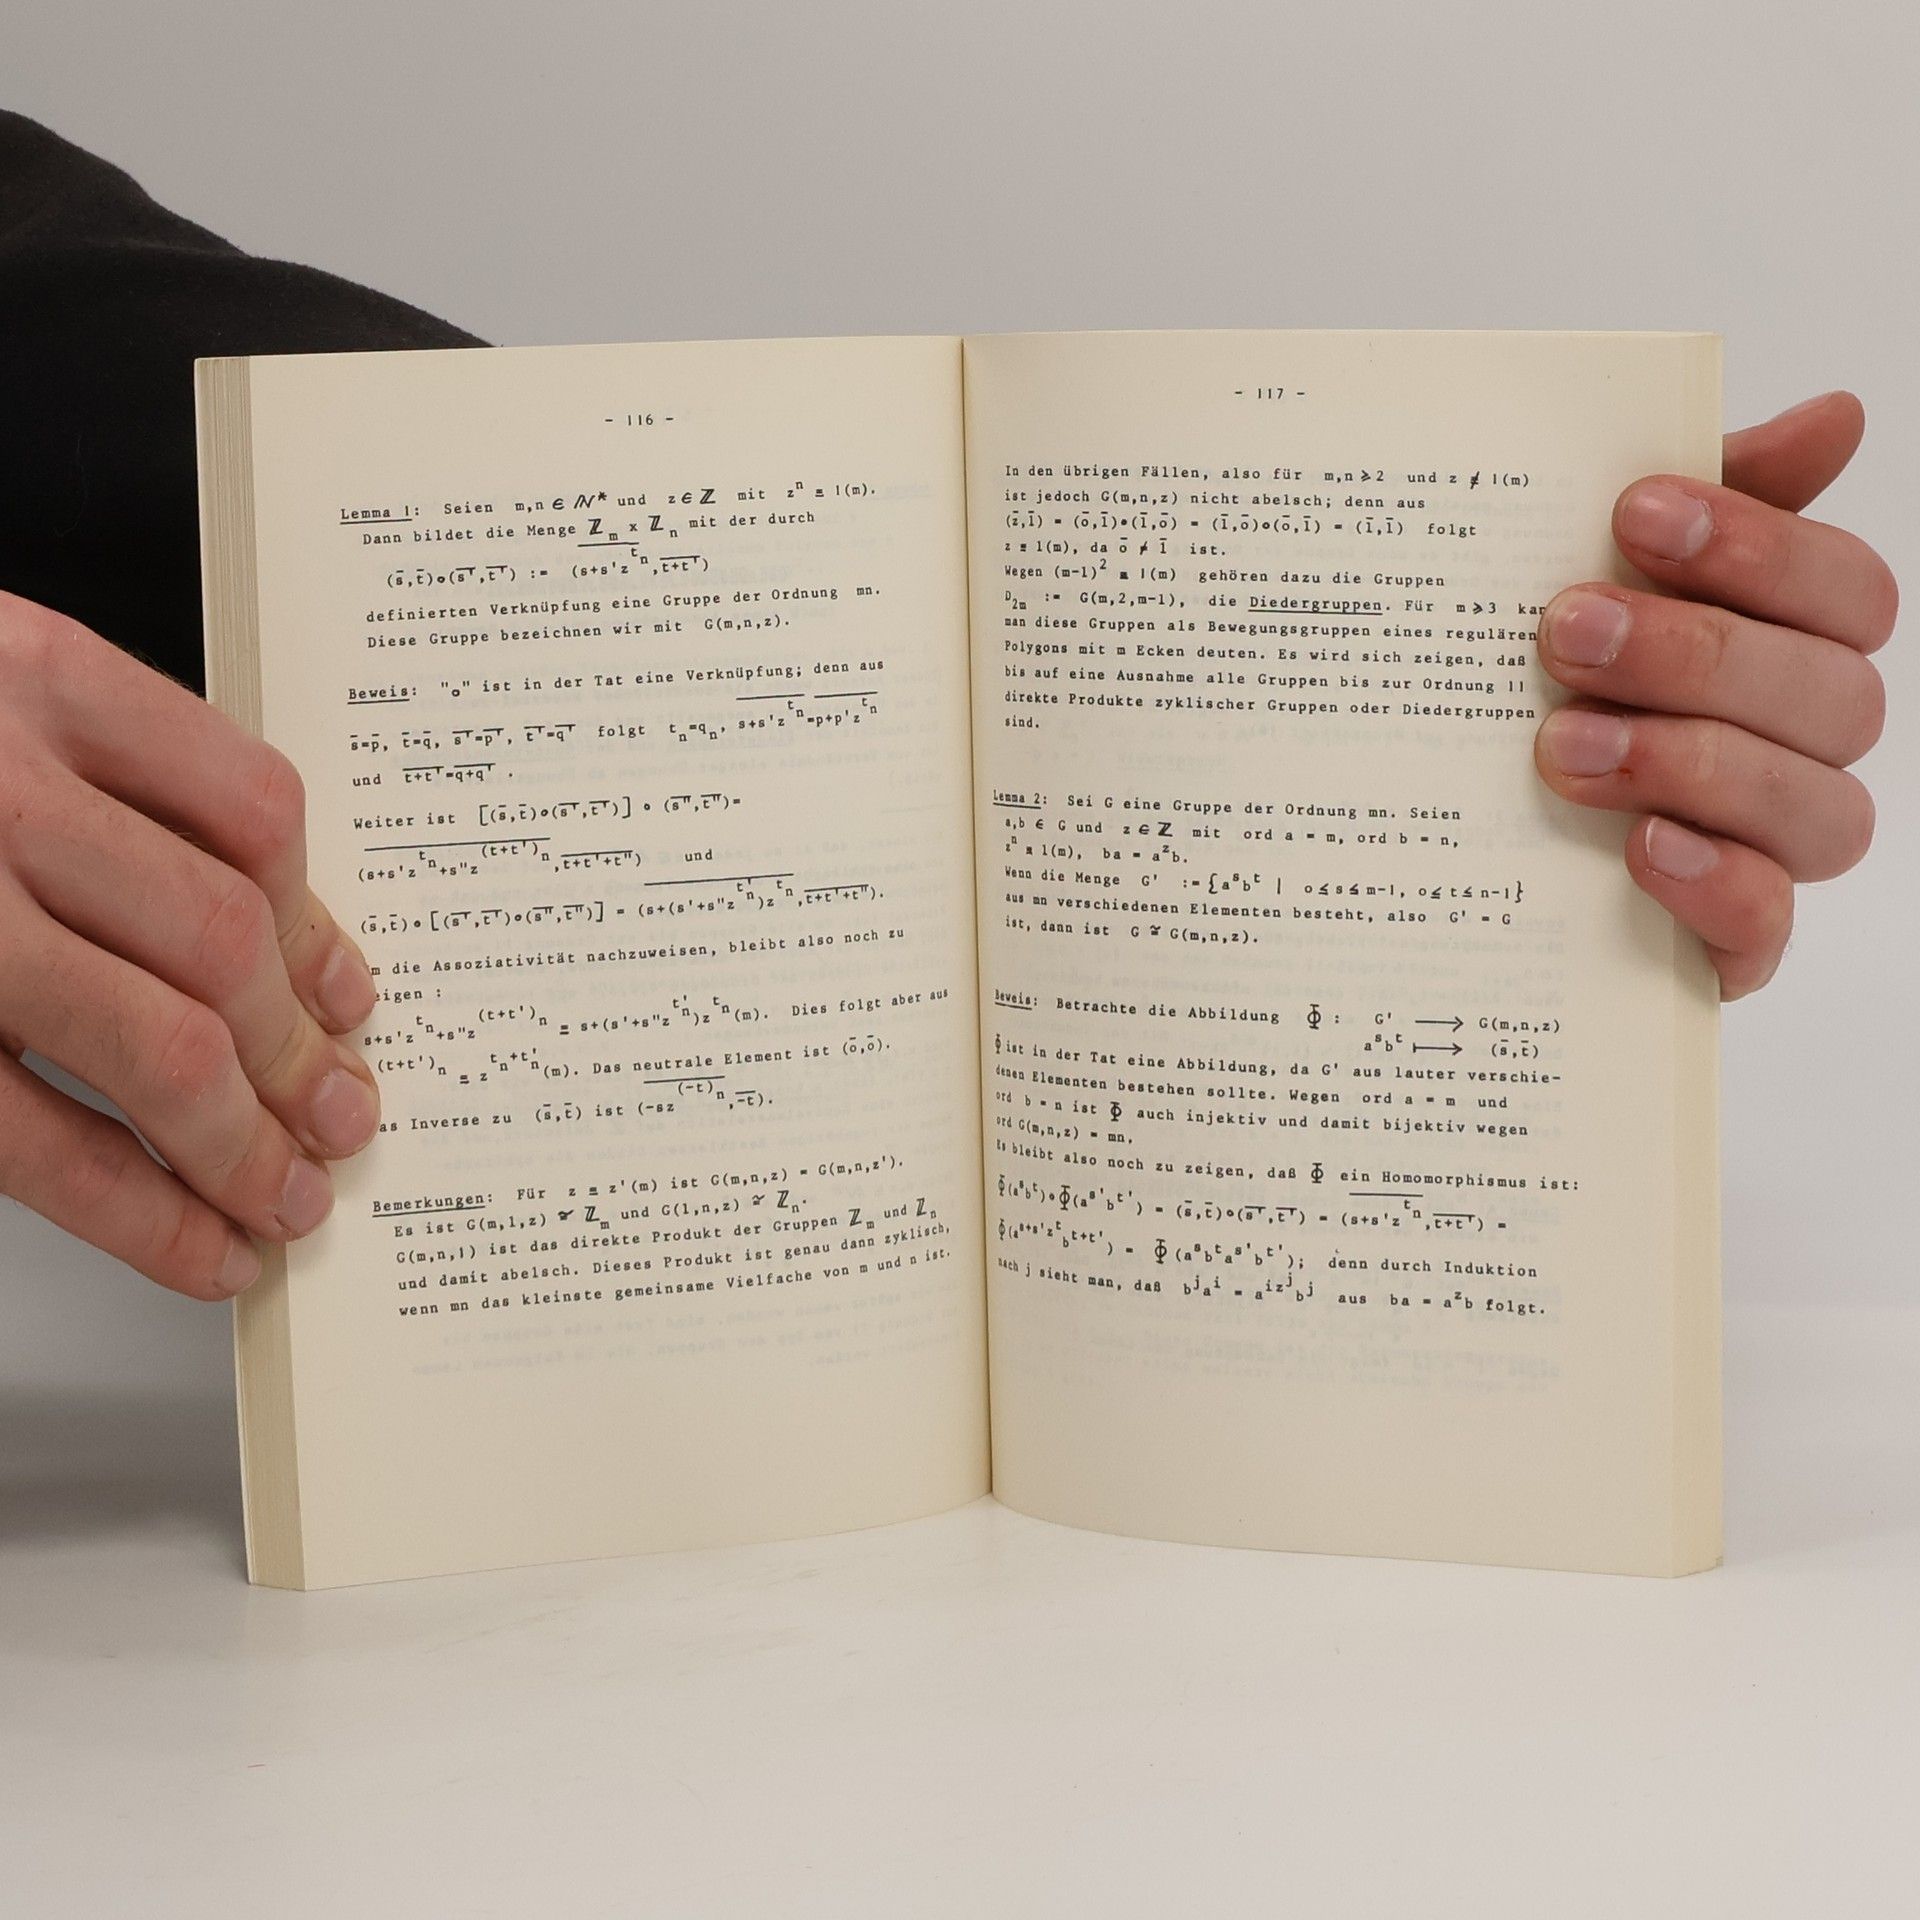 - 116 -
Lemma 1: Seien m,n ∈ ℕ* und z∈ℤ mit zⁿ ≡ 1(m).
Dann bildet die Menge ℤ_m x ℤ_n mit der durch
(s̄,t̄)∘(s̅'̅,t̅'̅) := (\overline{s+s'z^{t_n}},\overline{t+t'})
definierten Verknüpfung eine Gruppe der Ordnung mn.
Diese Gruppe bezeichnen wir mit G(m,n,z).
Beweis: "∘" ist in der Tat eine Verknüpfung; denn aus
s̄=p̄, t̄=q̄, s̅'̅=p̅'̅, t̅'̅=q̅'̅ folgt t_n=q_n, \overline{s+s'z^{t_n}}=\overline{p+p'z^{t_n}}
und \overline{t+t'}=\overline{q+q'} .
Weiter ist [(s̄,t̄)∘(s̅'̅,t̅'̅)] ∘ (s̅"̅,t̅"̅)=
(\overline{s+s'z^{t_n}+s"z^{(t+t')_n}},\overline{t+t'+t"}) und
(s̄,t̄)∘[(s̅'̅,t̅'̅)∘(s̅"̅,t̅"̅)] = (\overline{s+(s'+s"z^{t'_n})z^{t_n}},\overline{t+t'+t"}).
m die Assoziativität nachzuweisen, bleibt also noch zu
eigen :
s+s'z^{t_n}+s"z^{(t+t')_n} ≡ s+(s'+s"z^{t'_n})z^{t_n}(m). Dies folgt aber aus
(t+t')_n ≡ z^{t_n+t'_n}(m). Das neutrale Element ist (ō,ō).
as Inverse zu (s̄,t̄) ist (\overline{-sz^{(-t)_n}},\overline{-t}).
Bemerkungen: Für z ≡ z'(m) ist G(m,n,z) = G(m,n,z').
Es ist G(m,1,z) ≅ ℤ_m und G(1,n,z) ≅ ℤ_n.
G(m,n,1) ist das direkte Produkt der Gruppen ℤ_m und ℤ_n
und damit abelsch. Dieses Produkt ist genau dann zyklisch,
wenn mn das kleinste gemeinsame Vielfache von m und n ist.
- 117 -
In den übrigen Fällen, also für m,n ⩾ 2 und z ≢ 1(m)
ist jedoch G(m,n,z) nicht abelsch; denn aus
(z̄,1̄) = (ō,1̄)∘(1̄,ō) = (1̄,ō)∘(ō,1̄) = (1̄,1̄) folgt
z ≡ 1(m), da ō ≠ 1̄ ist.
Wegen (m-1)² ≡ 1(m) gehören dazu die Gruppen
D_{2m} := G(m,2,m-1), die Diedergruppen. Für m ⩾ 3 kan
man diese Gruppen als Bewegungsgruppen eines regulären
Polygons mit m Ecken deuten. Es wird sich zeigen, daß
bis auf eine Ausnahme alle Gruppen bis zur Ordnung 11
direkte Produkte zyklischer Gruppen oder Diedergruppen
sind.
Lemma 2: Sei G eine Gruppe der Ordnung mn. Seien
a,b ∈ G und z∈ℤ mit ord a = m, ord b = n,
zⁿ ≡ 1(m), ba = a^z b.
Wenn die Menge G' := {a^s b^t | o ≤ s ≤ m-1, o ≤ t ≤ n-1}
aus mn verschiedenen Elementen besteht, also G' = G
ist, dann ist G ≅ G(m,n,z).
Beweis: Betrachte die Abbildung Φ : G' ⟶ G(m,n,z)
a^s b^t ⟼ (s̄,t̄)
Φ ist in der Tat eine Abbildung, da G' aus lauter verschie-
denen Elementen bestehen sollte. Wegen ord a = m und
ord b = n ist Φ auch injektiv und damit bijektiv wegen
ord G(m,n,z) = mn.
Es bleibt also noch zu zeigen, daß Φ ein Homomorphismus ist:
Φ(a^s b^t)∘Φ(a^{s'} b^{t'}) = (s̄,t̄)∘(s̅'̅,t̅'̅) = (\overline{s+s'z^{t_n}},\overline{t+t'}) =
Φ(a^{s+s'z^t} b^{t+t'}) = Φ(a^s b^t a^{s'} b^{t'}); denn durch Induktion
nach j sieht man, daß b^j a^i = a^{iz^j} b^j aus ba = a^z b folgt.